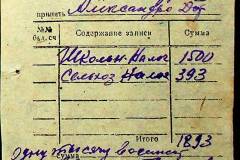 принять Александро
№№ бул. сч Содержание записи Сумма
Школьн. Налог 1500
Сельхоз Налог 393
Итого 1893
Одну тысячу восемь
сумма